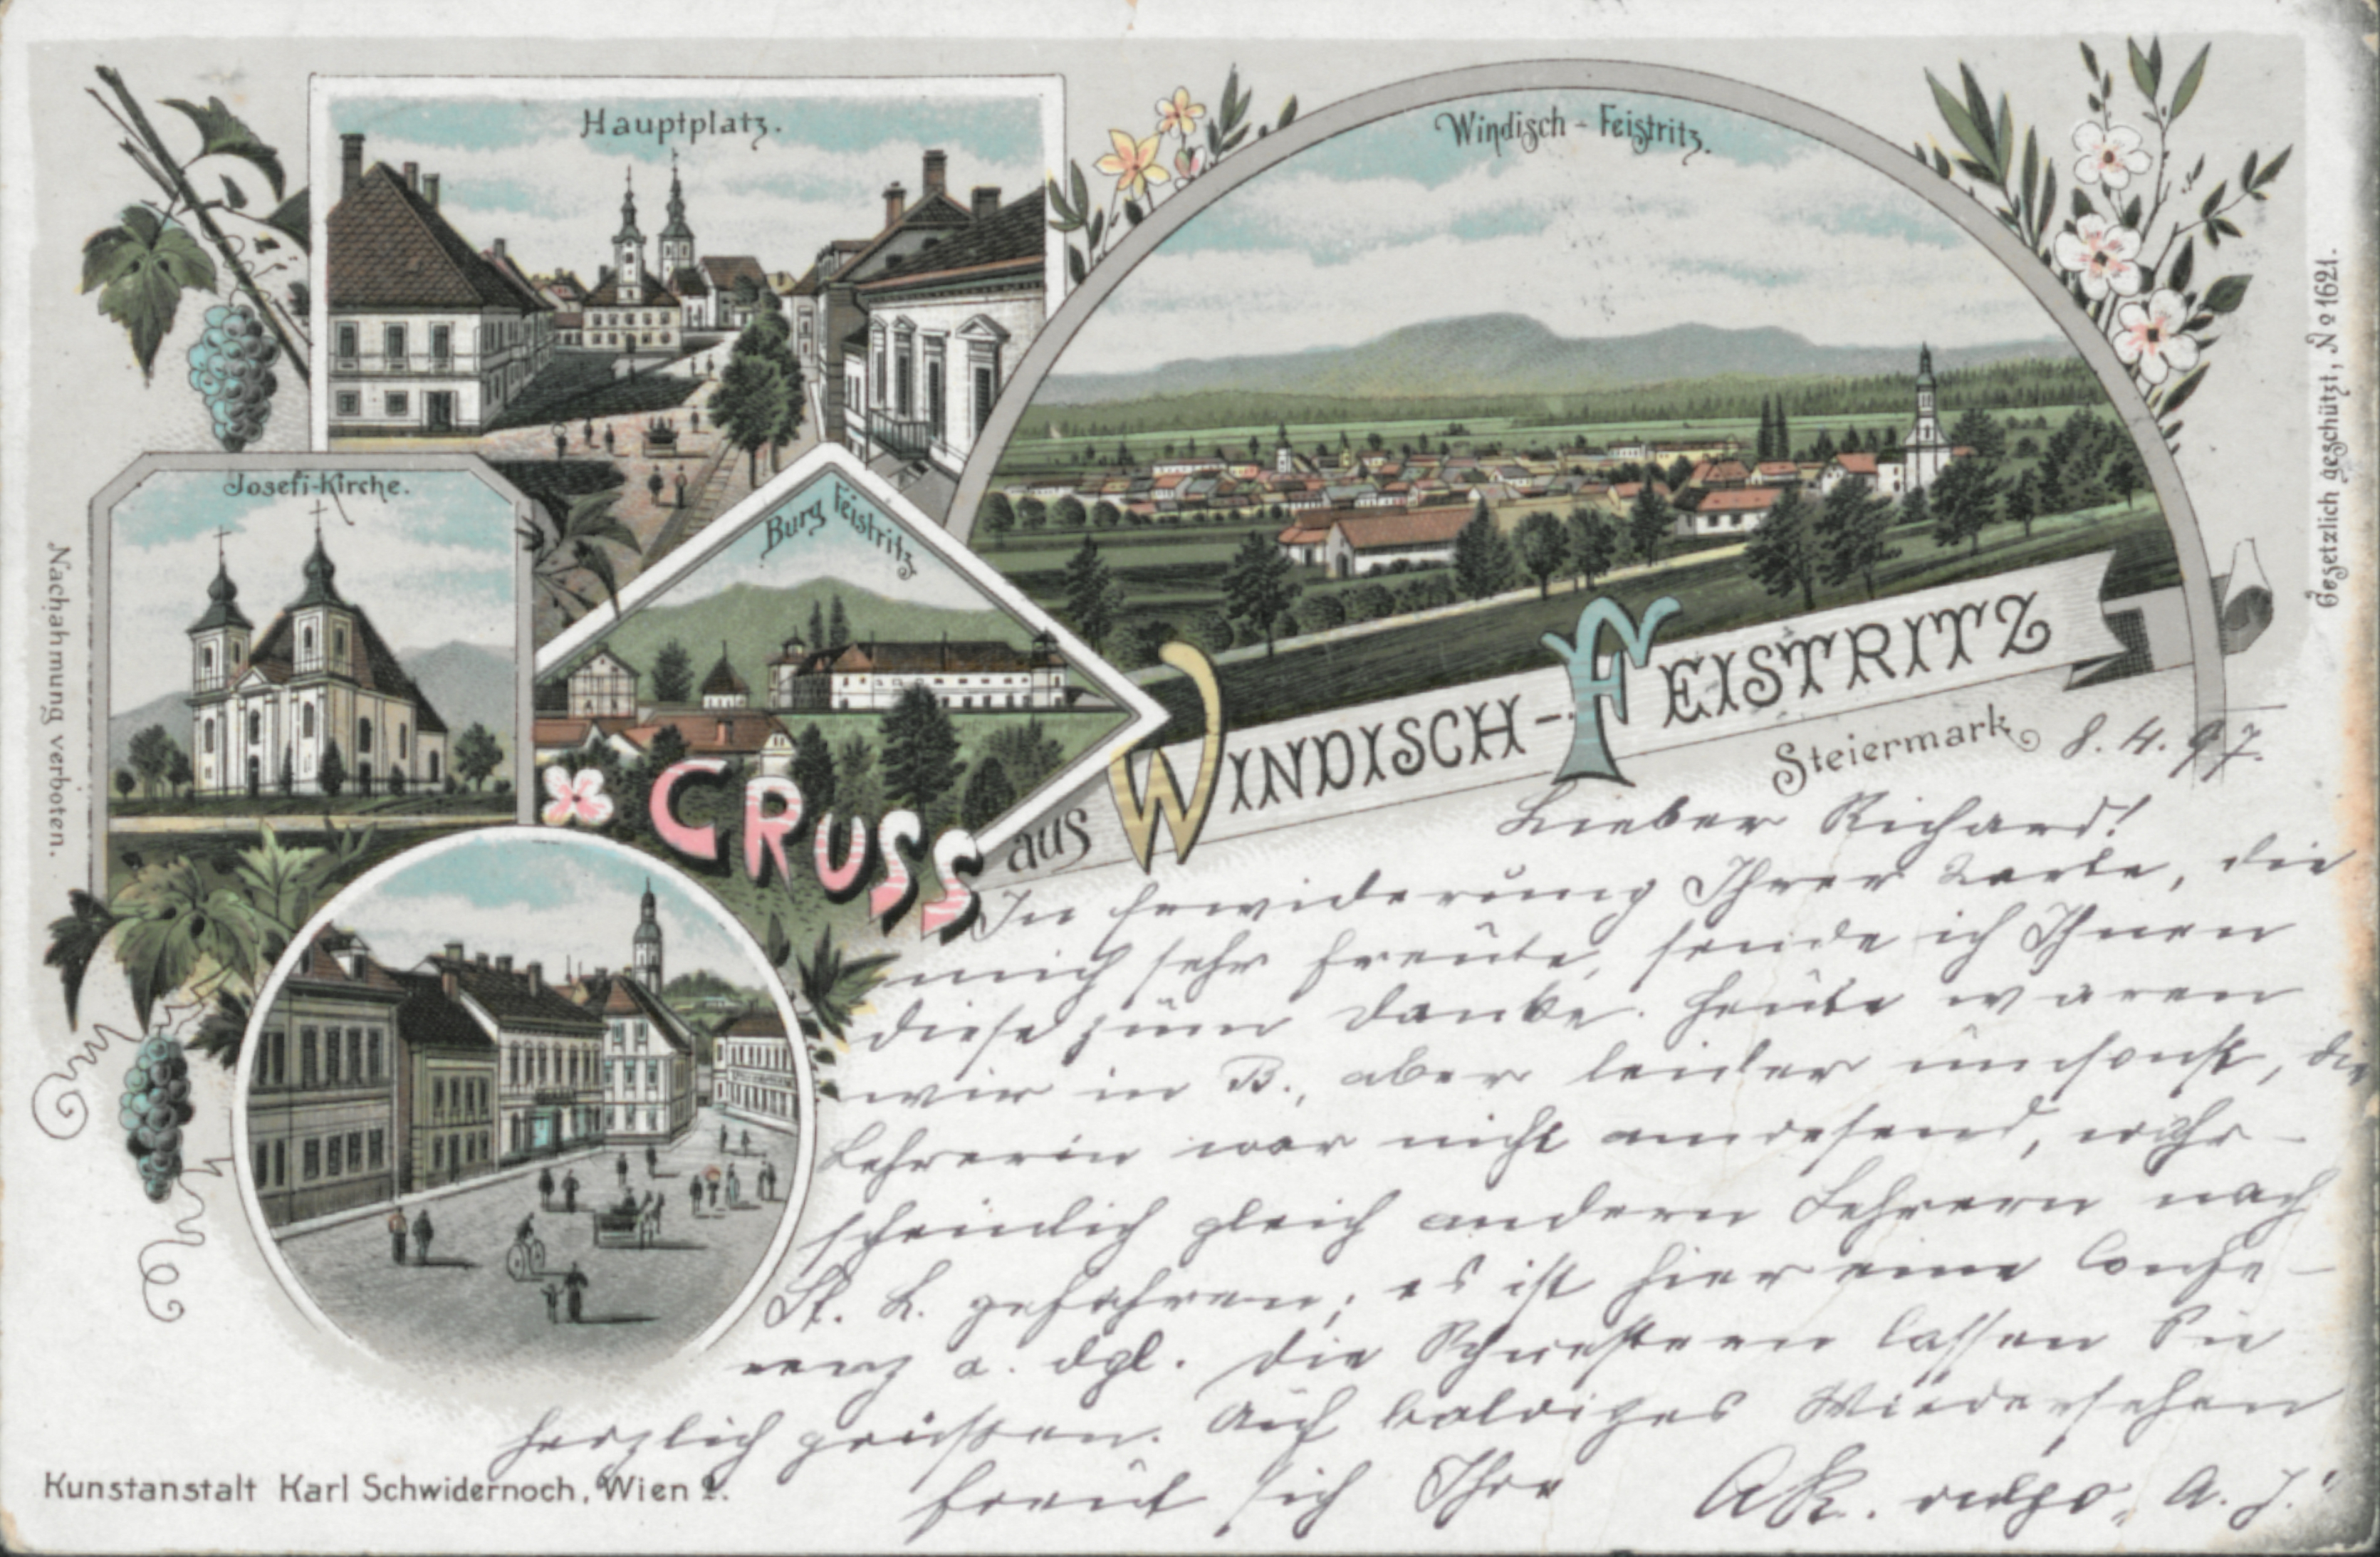 Hauptplatz.
Windisch-Feistritz.
Josefi-Kirche.
Burg Feistritz
GRUSS aus WINDISCH-FEISTRITZ
Steiermark
Nachahmung verboten.
Gesetzlich geschützt, No 1621.
8. 4. 97.
Lieber Richard!
In Erwiderung Ihrer Karte, die
mich sehr freute, sende ich Ihnen
diese zum Danke. Heute waren
wir in B., aber leider umsonst, die
Lehrerin war nicht anwesend, wahr-
scheinlich gleich andern Lehrern nach
St. L. gefahren; es ist hier eine Confe-
renz o. dgl. Die Schwestern lassen Sie
herzlich grüssen. Auf baldiges Wiedersehen
freut sich Ihre AR. vulgo „A. J."
Kunstanstalt Karl Schwidernoch, Wien